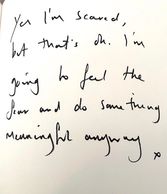 Yes I'm scared,
but that's ok. I'm
going to feel the
fear and do something
meaningful anyway x